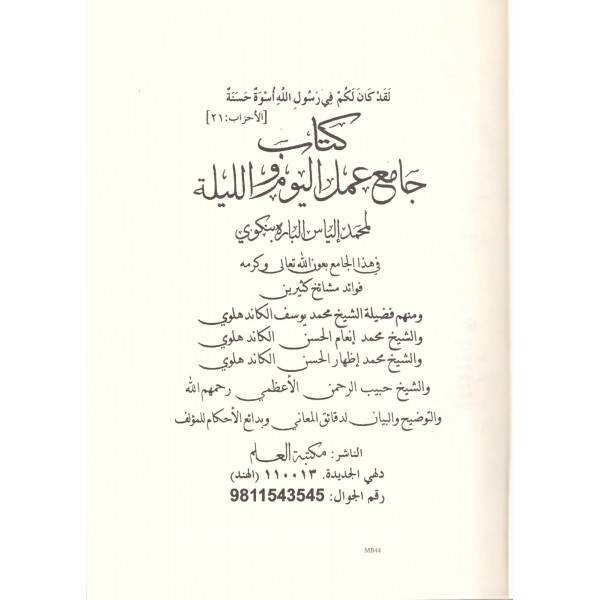 لَقَدْ كَانَ لَكُمْ فِي رَسُولِ اللهِ أُسْوَةٌ حَسَنَةٌ
[الأحزاب: ٢١]
كتاب
جامع عمل اليوم والليلة
لمحمد إلياس الباره بنكوي
في هذا الجامع بعون الله تعالى وكرمه
فوائد مشائخ كثيرين
ومنهم فضيلة الشيخ محمد يوسف الكاندهلوي
والشيخ محمد إنعام الحسن الكاندهلوي
والشيخ محمد إظهار الحسن الكاندهلوي
والشيخ حبيب الرحمن الأعظمي رحمهم الله
والتوضيح والبيان لدقائق المعاني وبدائع الأحكام للمؤلف
الناشر: مكتبة العلم
دلهي الجديدة. ١١٠٠١٣ (الهند)
رقم الجوال: 9811543545
MB44